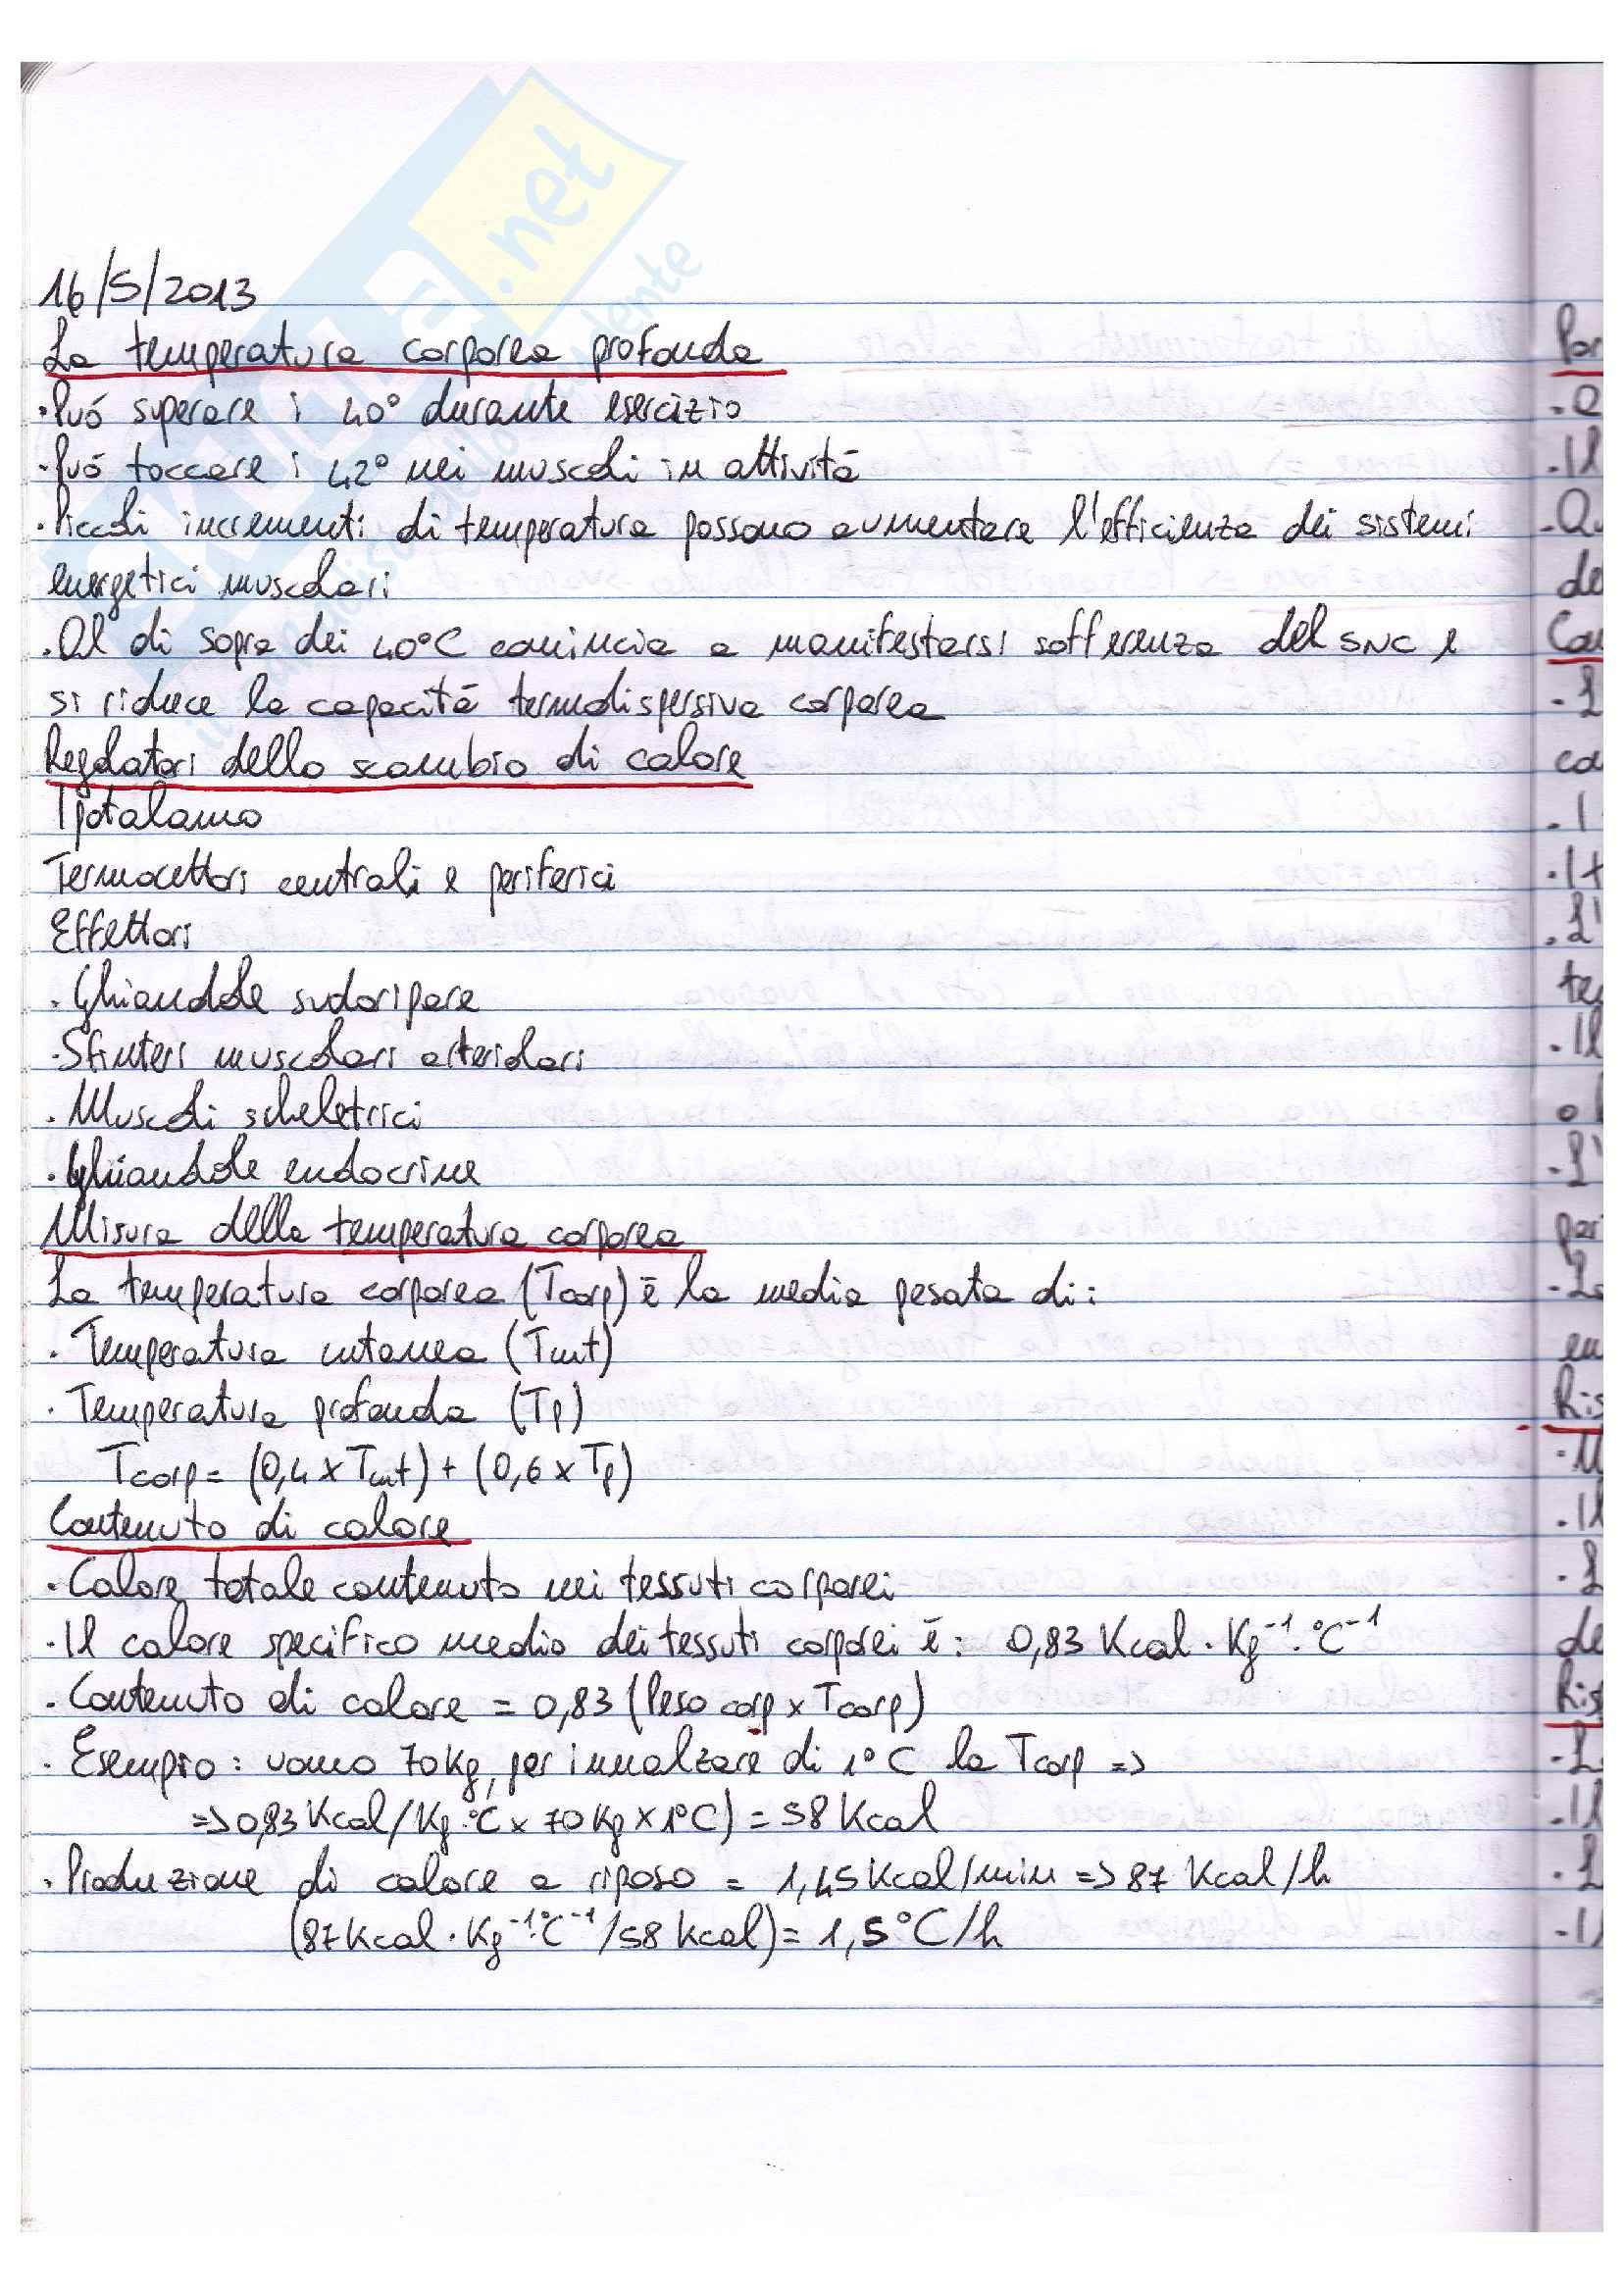 16/5/2013
La temperatura corporea profonda
·Può superare i 40° durante esercizio
·Può toccare i 42° nei muscoli in attività
·Piccoli incrementi di temperatura possono aumentare l'efficienza dei sistemi
energetici muscolari
·Al di sopra dei 40°C comincia a manifestarsi sofferenza del SNC e
si riduce la capacità termodispersiva corporea
Regolatori dello scambio di calore
Ipotalamo
Termocettori centrali e periferici
Effettori
·Ghiandole sudoripare
·Sfinteri muscolari arteriolari
·Muscoli scheletrici
·Ghiandole endocrine
Misura della temperatura corporea
La temperatura corporea (Tcorp) è la media pesata di:
·Temperatura cutanea (Tcut)
·Temperatura profonda (Tp)
Tcorp = (0,4 x Tcut) + (0,6 x Tp)
Contenuto di calore
·Calore totale contenuto nei tessuti corporei
·Il calore specifico medio dei tessuti corporei è: 0,83 Kcal · Kg⁻¹·°C⁻¹
·Contenuto di calore = 0,83 (Peso corp x Tcorp)
·Esempio: uomo 70Kg, per innalzare di 1°C la Tcorp =>
=> 0,83 Kcal/Kg·°C x 70Kg x 1°C) = 58 Kcal
·Produzione di calore a riposo = 1,45 Kcal/min => 87 Kcal/h
(87Kcal · Kg⁻¹·°C⁻¹/58 Kcal) = 1,5°C/h
.net